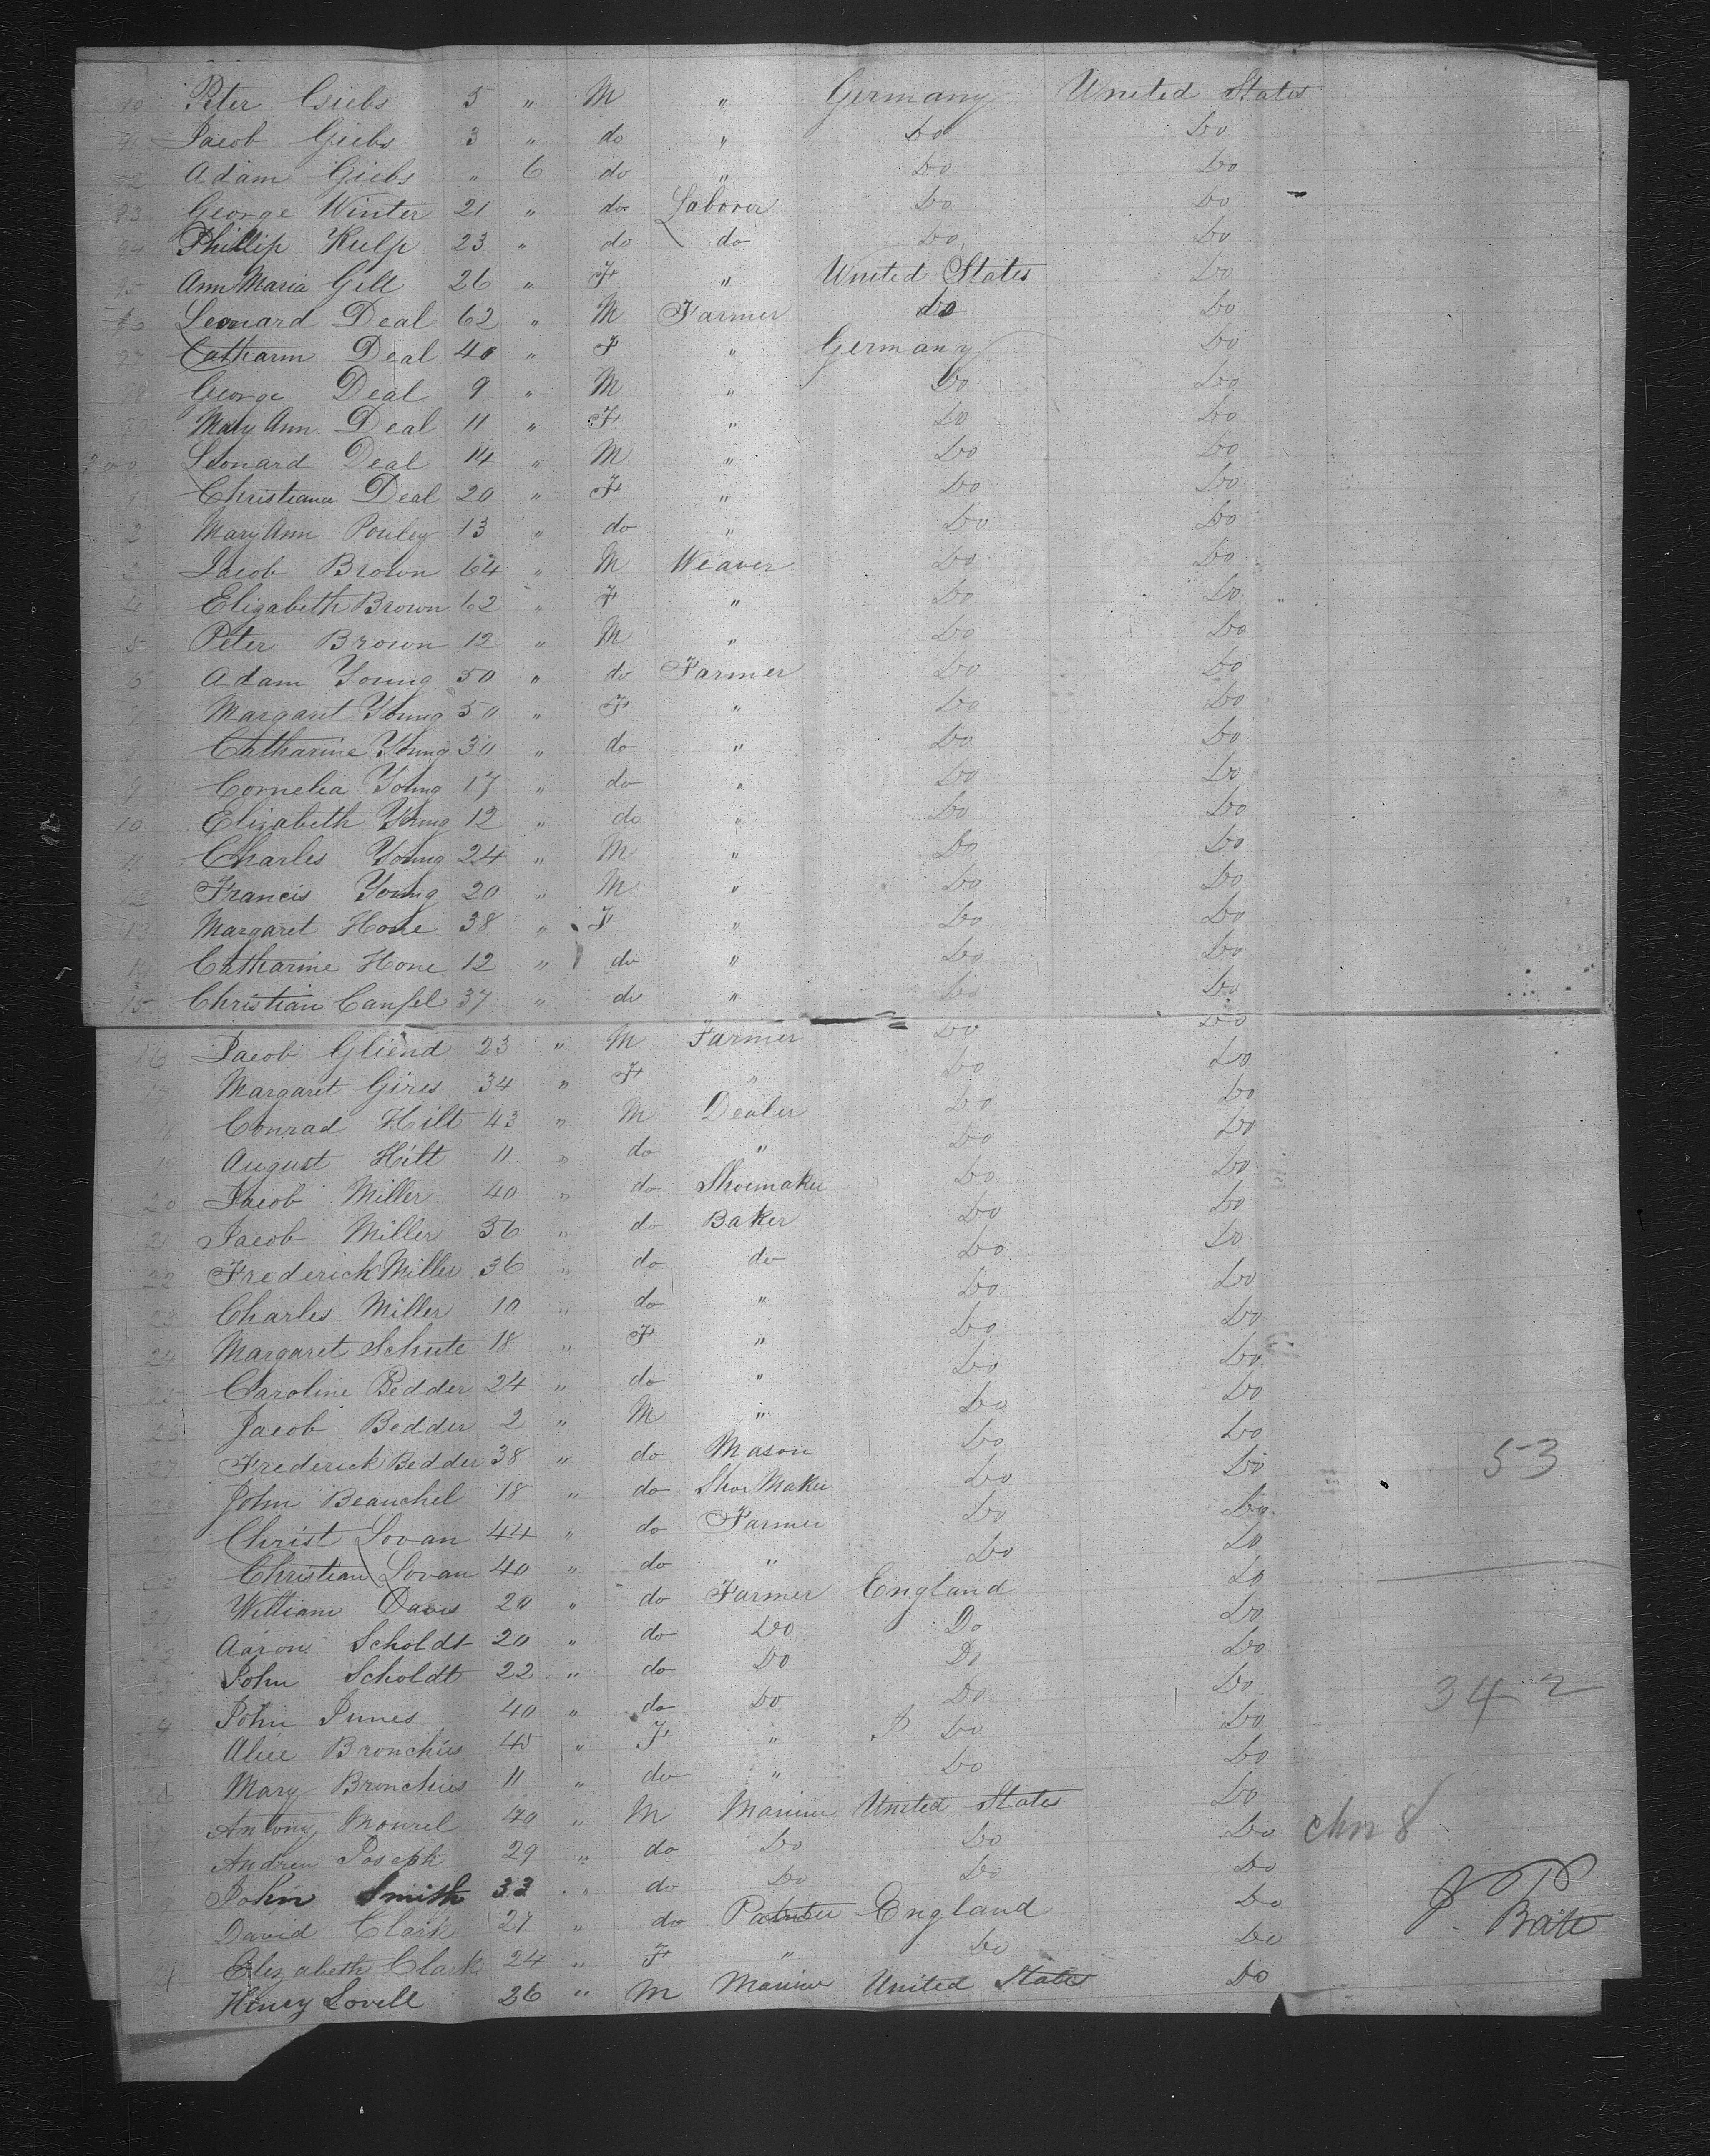 90 Peter Giebs 5 " M " Germany United States
91 Jacob Giebs 3 " do " Do Do
92 Adam Giebs " 6 do " Do Do
93 George Winter 21 " do Laborer Do Do
94 Phillip Kulp 23 " do do Do Do
95 Ann Maria Gill 26 " F " United States Do
96 Leonard Deal 62 " M Farmer do Do
97 Catharin Deal 40 " F " Germany Do
98 George Deal 9 " M " Do Do
99 Mary Ann Deal 11 " F " Do Do
200 Leonard Deal 14 " M " Do Do
1 Christiana Deal 20 " F " Do Do
2 Mary Ann Pouley 13 " do " Do Do
3 Jacob Brown 64 " M Weaver Do Do
4 Elizabeth Brown 62 " F " Do Do
5 Peter Brown 12 " M " Do Do
6 Adam Young 50 " do Farmer Do Do
7 Margaret Young 50 " F " Do Do
8 Catharine Young 30 " do " Do Do
9 Cornelia Young 17 " do " Do Do
10 Elizabeth Young 12 " do " Do Do
11 Charles Young 24 " M " Do Do
12 Francis Young 20 " M " Do Do
13 Margaret Hone 38 " F " Do Do
14 Catharine Hone 12 " do " Do Do
15 Christian Canfel 37 " do " Do Do
16 Jacob Gliend 23 " M Farmer Do Do
17 Margaret Gires 34 " F " Do Do
18 Conrad Hilt 43 " M Dealer Do Do
19 August Hilt 11 " do " Do Do
20 Jacob Miller 40 " do Shoemaker Do Do
21 Jacob Miller 36 " do Baker Do Do
22 Frederick Miller 36 " do do Do Do
23 Charles Miller 10 " do " Do Do
24 Margaret Schute 18 " F " Do Do
25 Caroline Bedder 24 " do " Do Do
26 Jacob Bedder 2 " M " Do Do
27 Frederick Bedder 38 " do Mason Do Do
53
28 John Beauchel 18 " do Shoe Maker Do Do
29 Christ Lovan 44 " do Farmer Do Do
30 Christian Lovan 40 " do " Do Do
31 William Davis 20 " do Farmer England Do
32 Aaron Scholdt 20 " do Do Do Do
33 John Scholdt 22 " do Do Do Do
34 John Junes 40 " do Do Do Do
342
Alice Bronchies 45 " F " Do Do
36 Mary Bronchies 11 " do " Do Do
Antony Mourel 40 " M Mariner United States Do
Andrew Joseph 29 " do Do Do Do
chn 8
John Smith 33 " do Do Do Do
David Clark 27 " do Painter England Do
J. Bate
41 Elizabeth Clark 24 " F " Do Do
Henry Lovell 26 " M Mariner United States Do